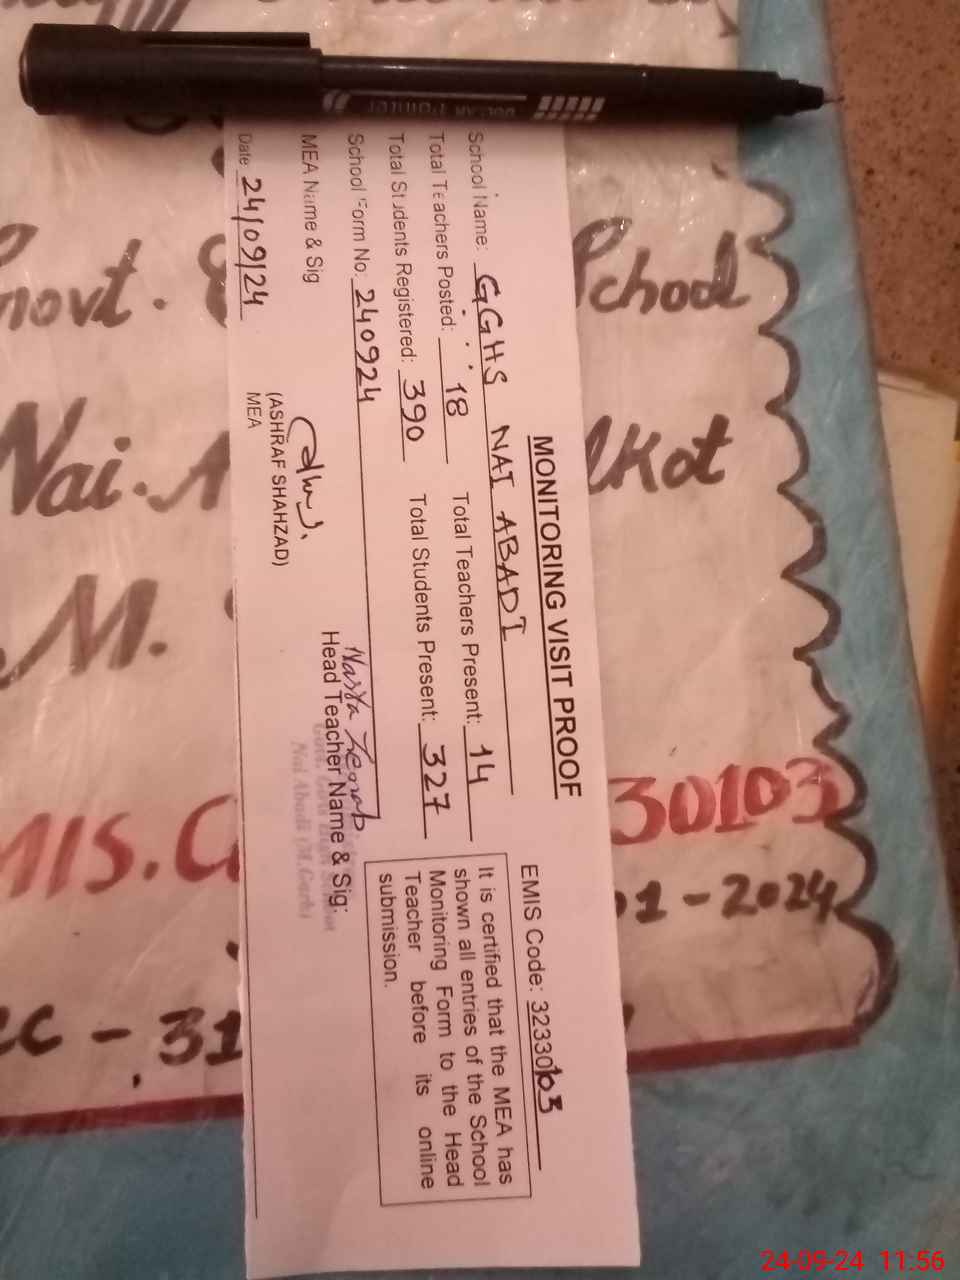 MONITORING VISIT PROOF
EMIS Code: 32330103
School Name: GGHS NAI ABADI
Total Teachers Posted: 18 Total Teachers Present: 14
Total Students Registered: 390 Total Students Present: 327
School Form No: 240924
It is certified that the MEA has
shown all entries of the School
Monitoring Form to the Head
Teacher before its online
submission.
MEA Name & Sig
Head Teacher Name & Sig:
Nai Abadi
(ASHRAF SHAHZAD)
MEA
Date 24/09/24
Govt. School
Nai. lKot
M.
MIS. 30103
01-2024
31
24-09-24 11:56